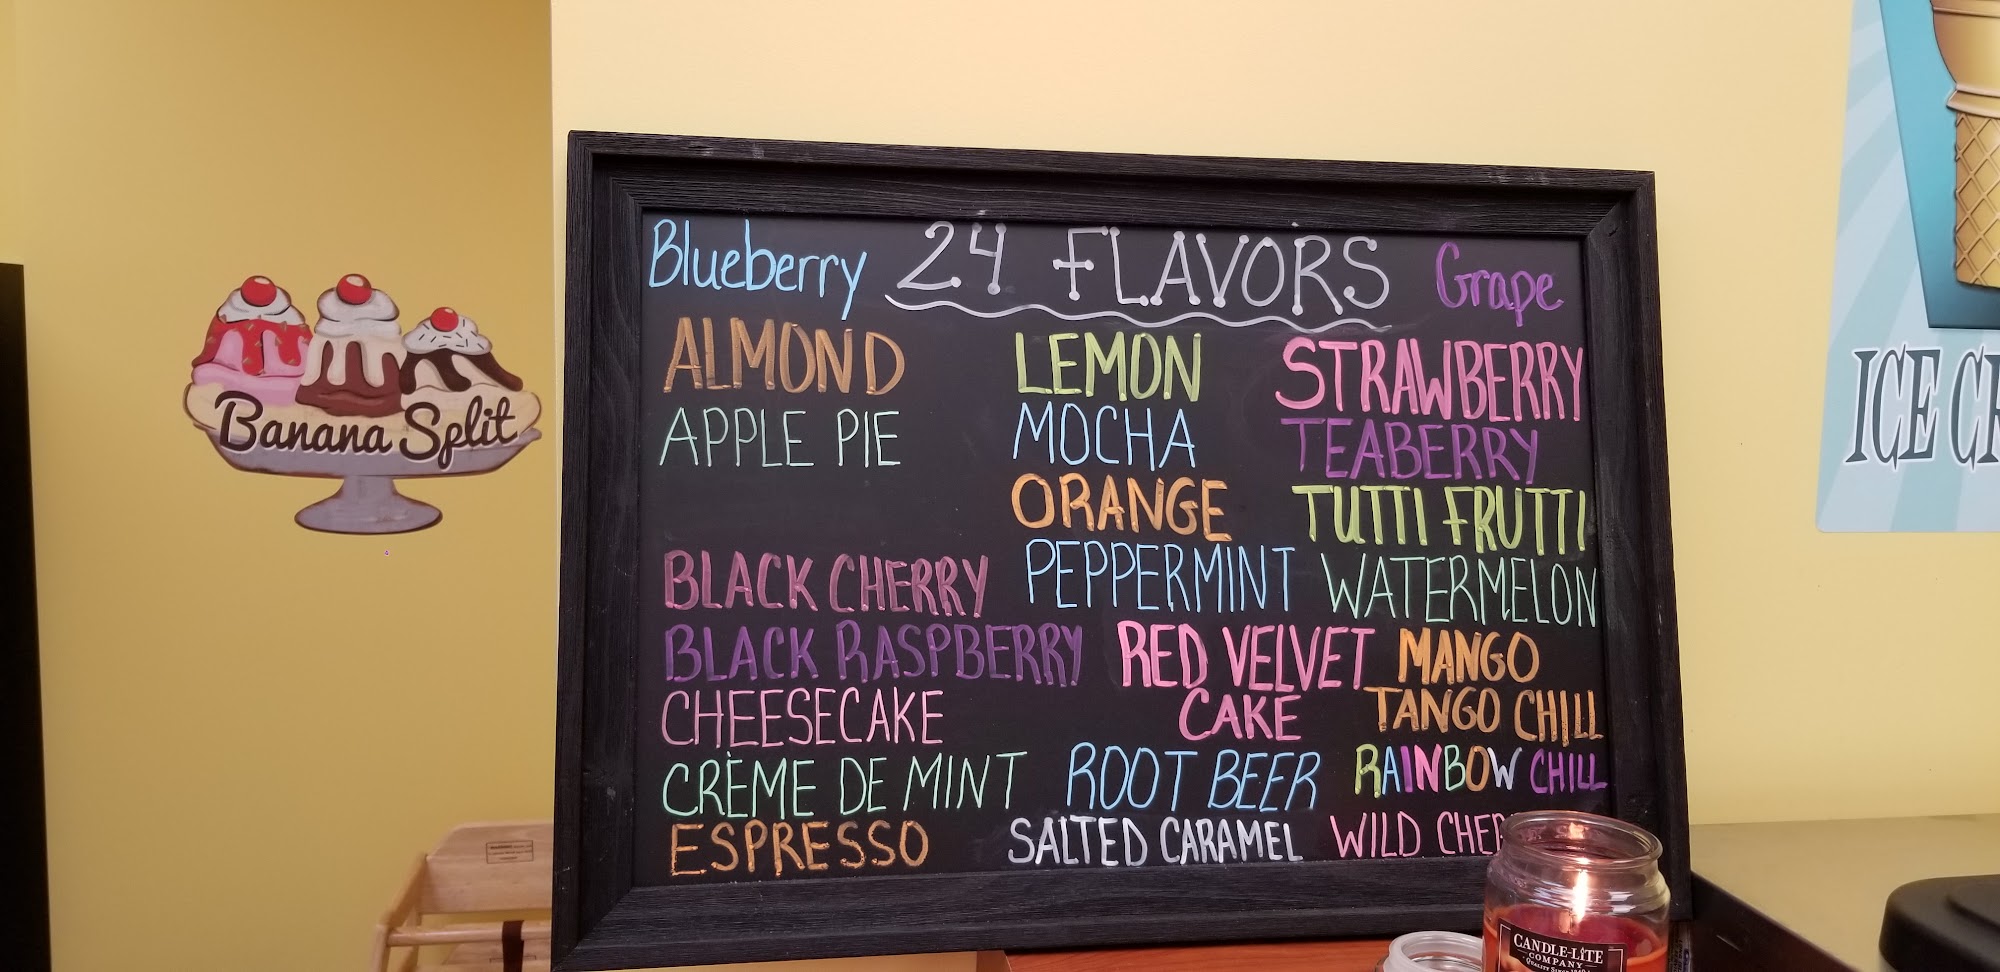 Blueberry 24 FLAVORS Grape
ALMOND LEMON STRAWBERRY
APPLE PIE MOCHA TEABERRY
ORANGE TUTTI FRUTTI
BLACK CHERRY PEPPERMINT WATERMELON
BLACK RASPBERRY RED VELVET MANGO
CHEESECAKE CAKE TANGO CHILL
CRÈME DE MINT ROOT BEER RAINBOW CHILL
ESPRESSO SALTED CARAMEL WILD
Banana Split
ICE
CANDLE-LITE
COMPANY